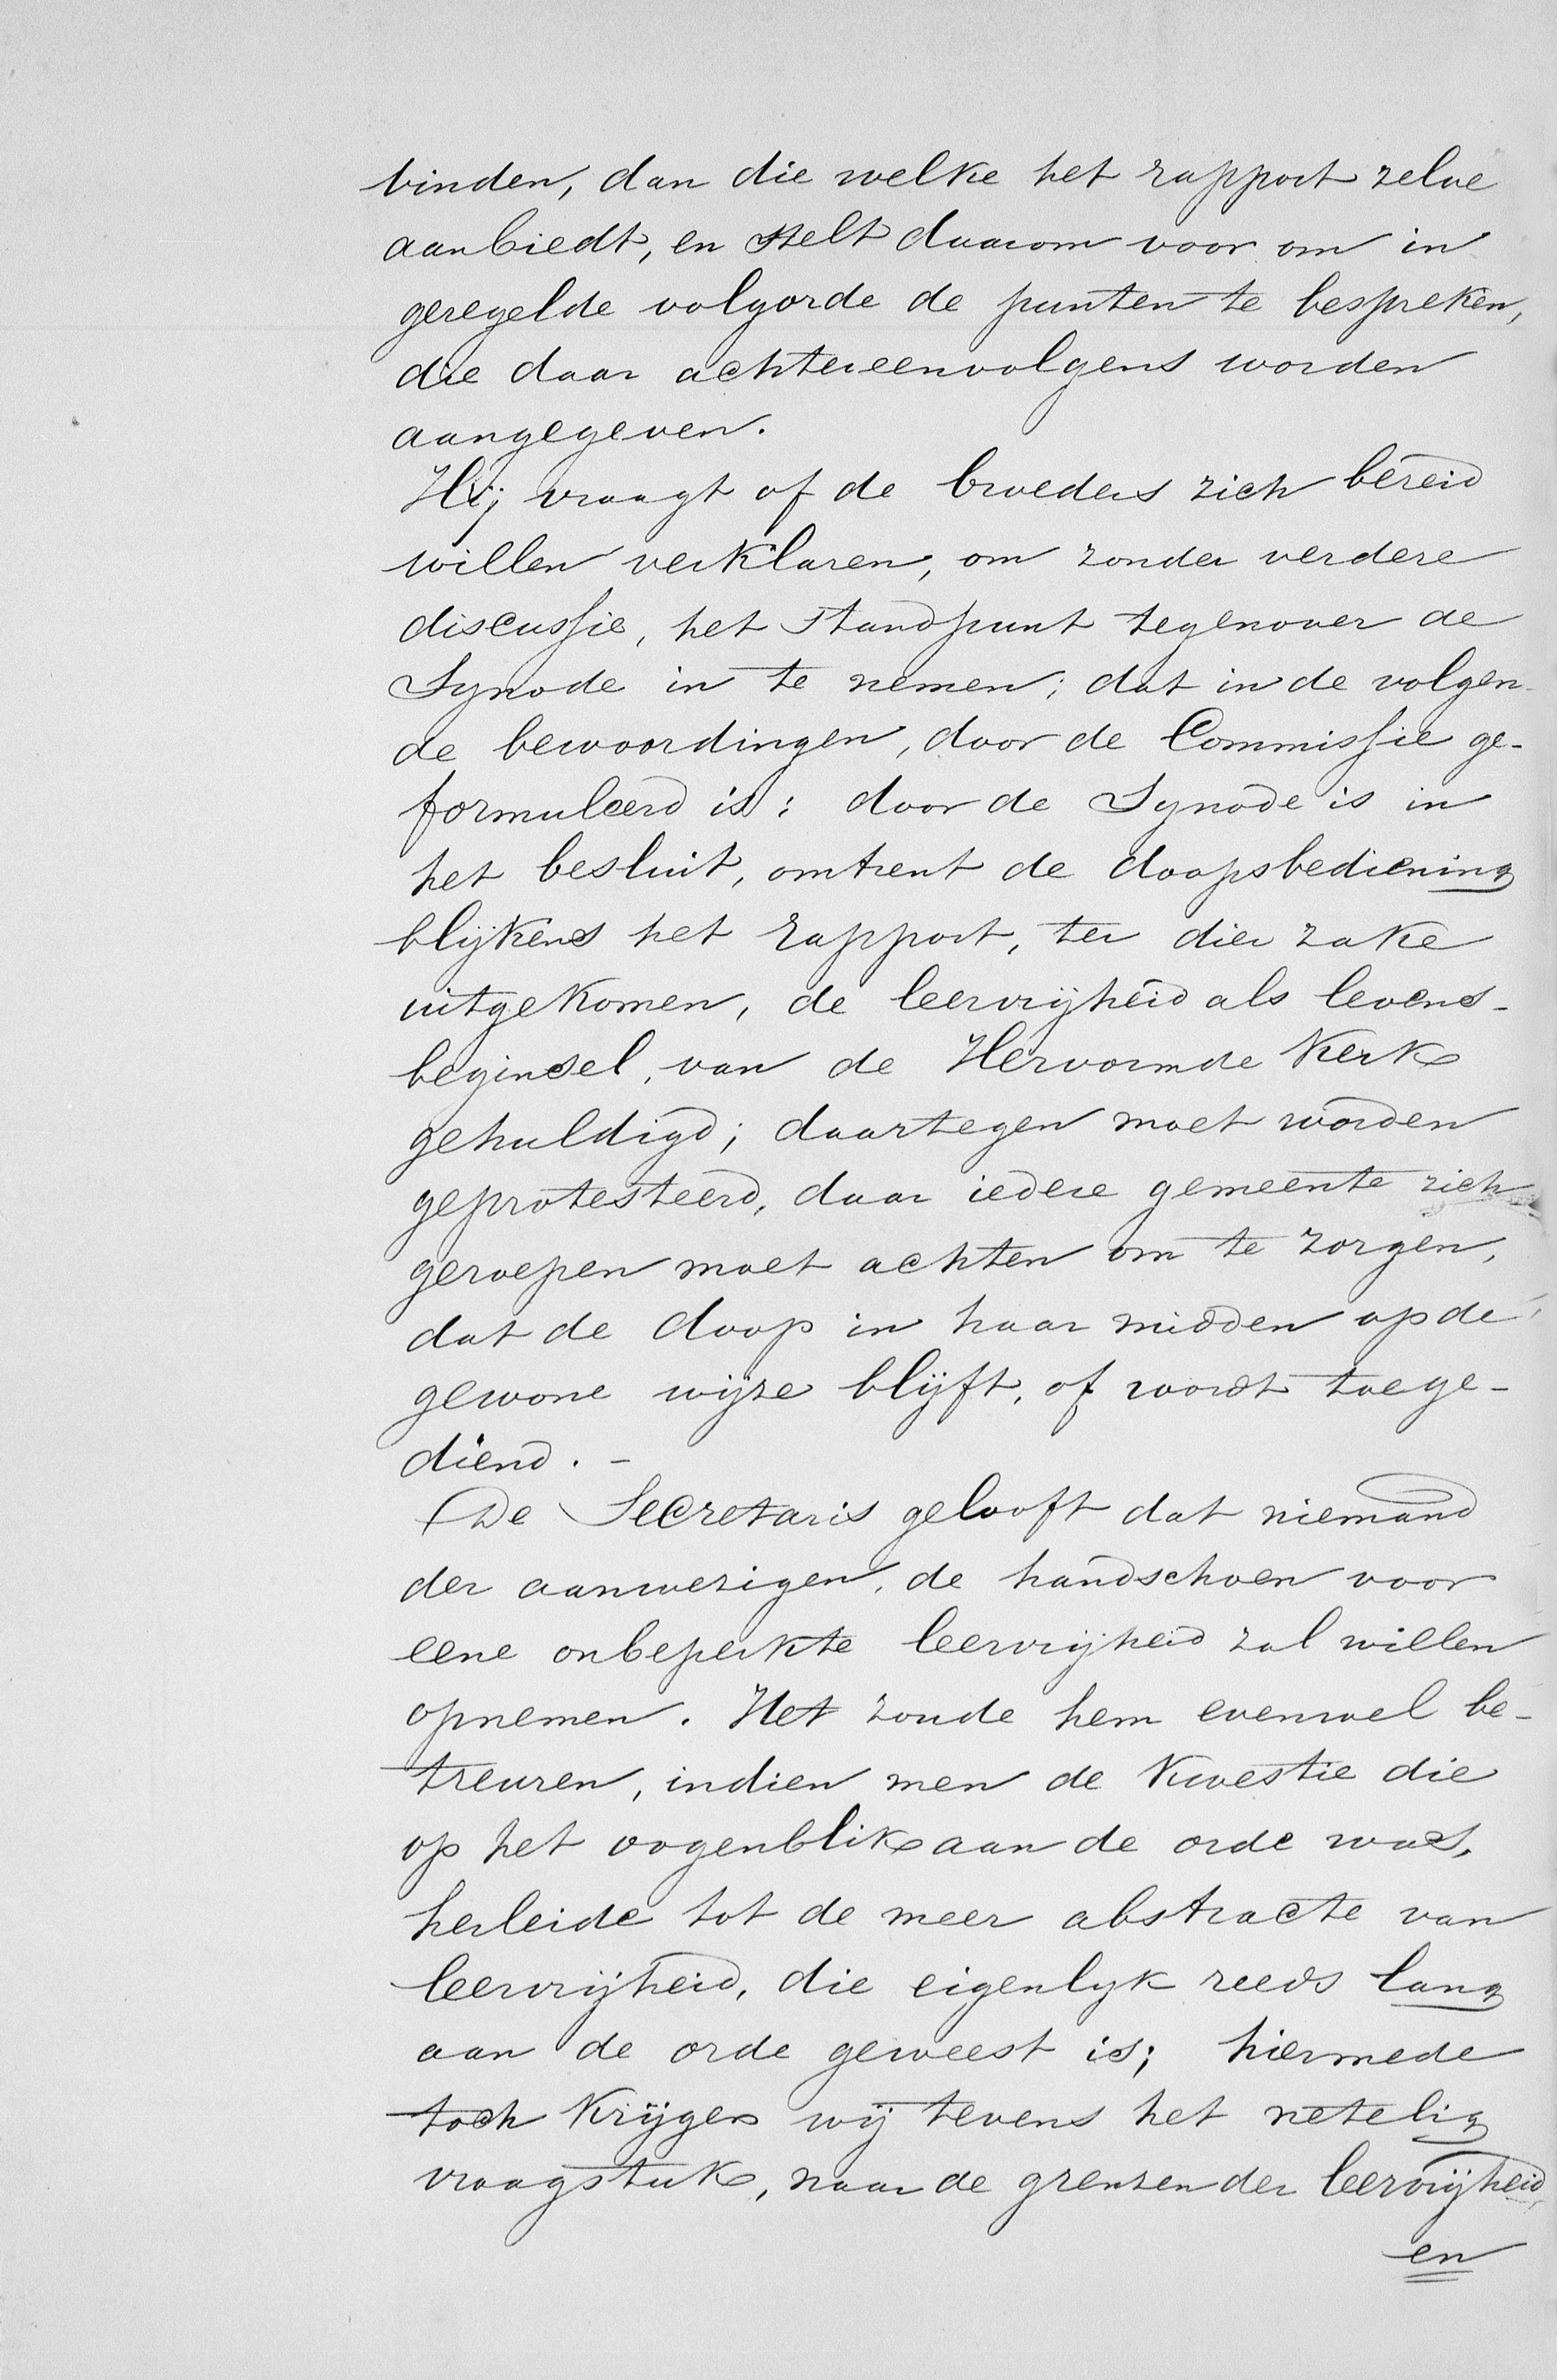 binden, dan die welke het rapport zelve
aanbiedt, en stelt daarom voor om in
geregelde volgorde de punten te bespreken,
die daar achtereenvolgens worden
aangegeven.
Hij vraagt of de broeders zich bereid
willen verklaren, om zonder verdere
discussie, het standpunt tegenover de
Synode in te nemen; dat in de volgen-
de bewoordingen, door de Commissie ge-
formuleerd is: door de Synode is in
het besluit, omtrent de doopsbediening
blijkens het rapport, ter dier zake
uitgekomen, de leervrijheid als levens-
beginsel, van de Hervormde Kerk
gehuldigd; daartegen moet worden
geprotesteerd, daar iedere gemeente zich
geroepen moet achten om te zorgen,
dat de doop in haar midden op de
gewone wijze blijft, of wordt toege-
diend. -
De Secretaris gelooft dat niemand
der aanwezigen, de handschoen voor
eene onbeperkte leervrijheid zal willen
opnemen. Het zoude hem evenwel be-
treuren, indien men de Kwestie die
op het oogenblik aan de orde was,
herleide tot de meer abstracte van
leervrijheid, die eigenlyk reeds lang
aan de orde geweest is; hiermede
toch Krijgen wij tevens het netelig
vraagstuk, naar de grenzen der leervrijheid,
en